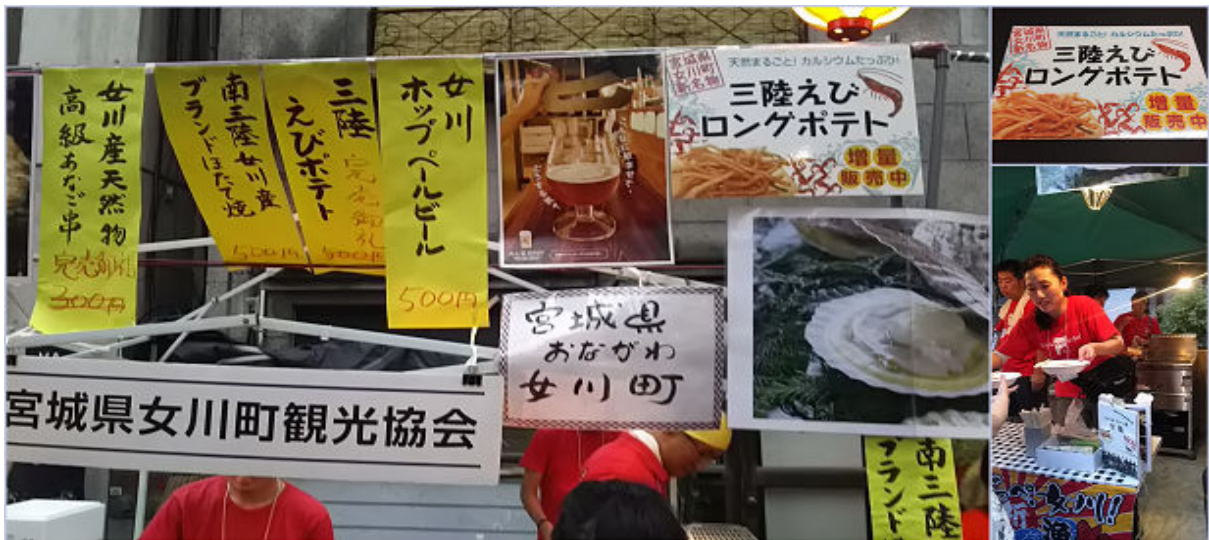 女川産天然物
高級あなご串
完売御礼
500円
南三陸女川産
ブランドほたて焼
500円
三陸
えびポテト
完売御礼
500円
女川
ホップペールビール
500円
宮城県
女川町
新名物
天然まるごと!カルシウムたっぷり!
三陸えび
ロングポテト
増量
販売中
宮城県
おながわ
女川町
宮城県女川町観光協会
南三陸
ブランド
宮城県
女川町
新名物
天然まるごと!カルシウムたっぷり!
三陸えび
ロングポテト
増量
販売中
女川!